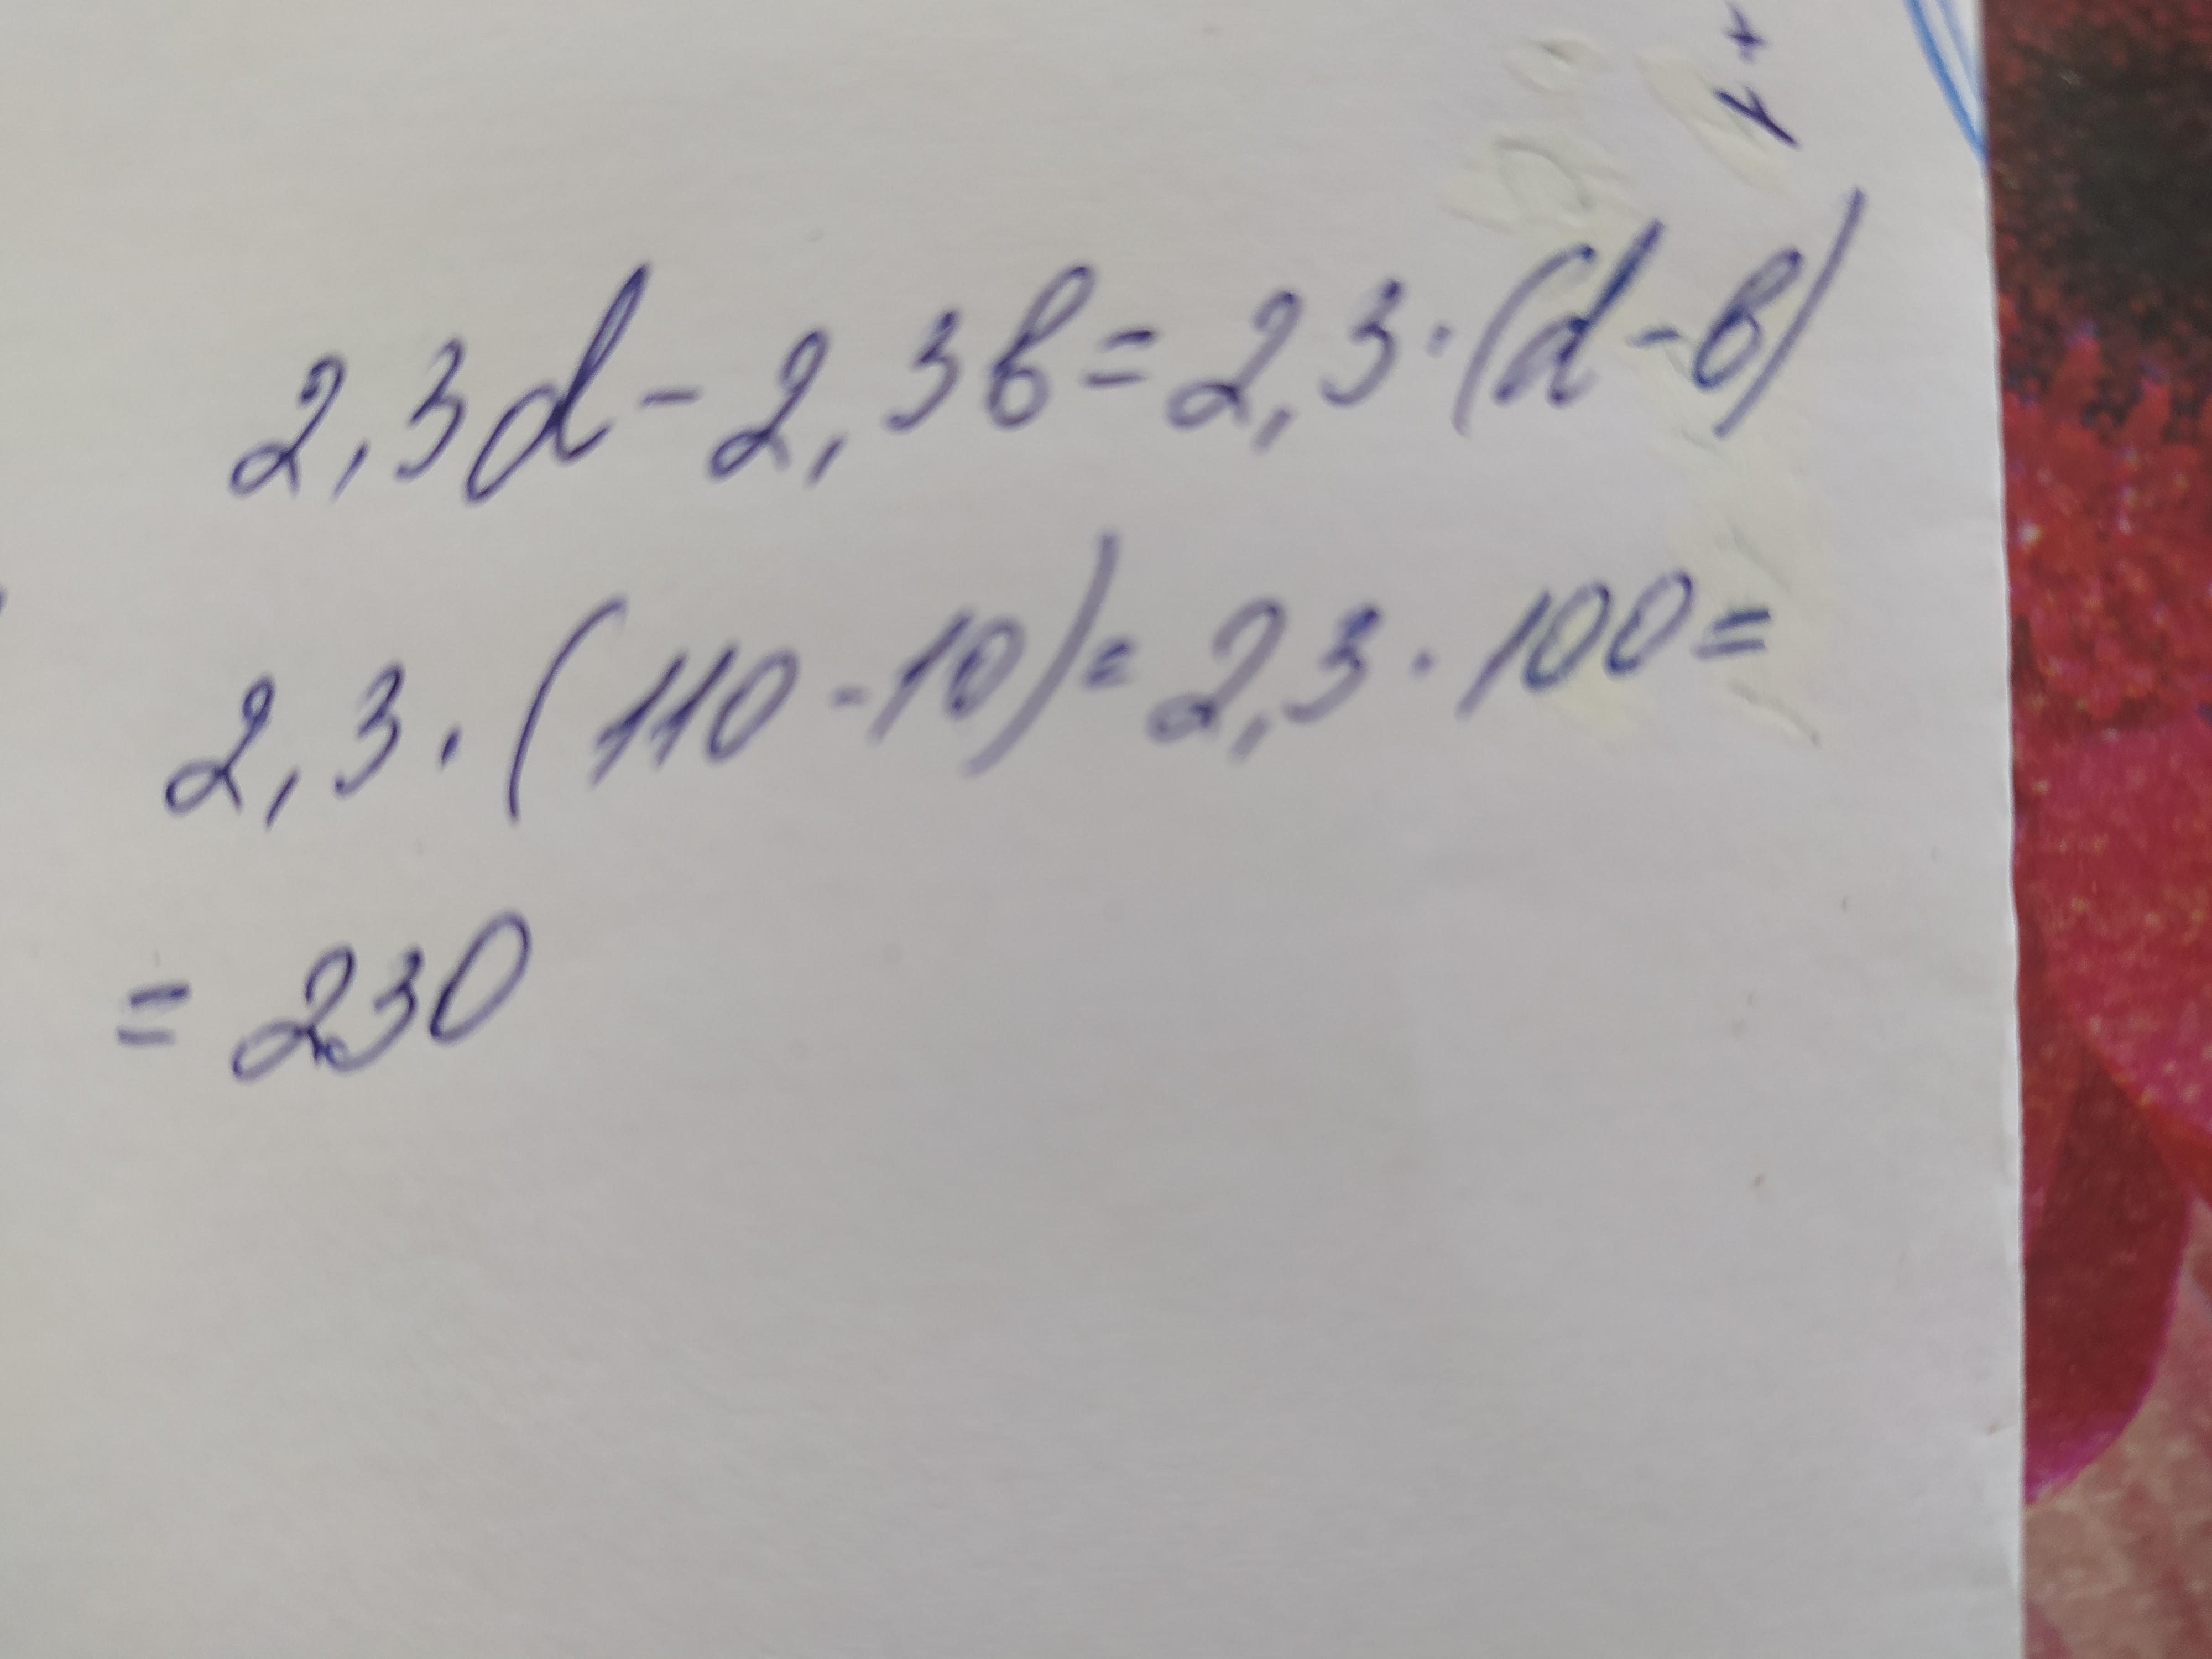 2,3d-2,3в=2,3·(d-в)
2,3·(110-10)=2,3·100=
=230